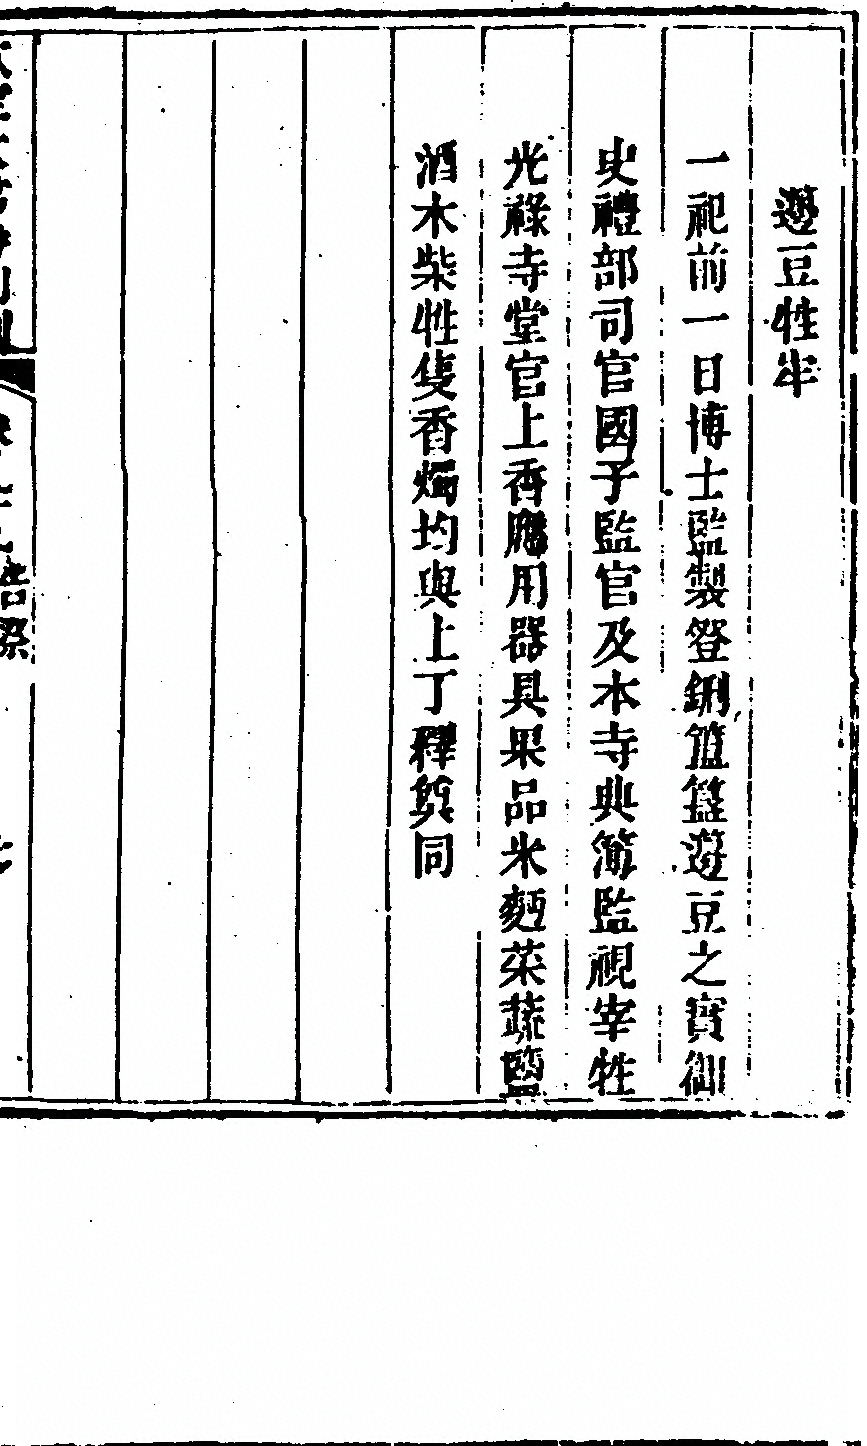 籩豆牲牢
一祀前一日博士監製登鉶簠簋籩豆之實御
史禮部司官國子監官及本寺典簿監視宰牲
光祿寺堂官上香應用器具果品米麵菜蔬醢
酒木柴牲隻香燭均與上丁釋奠同